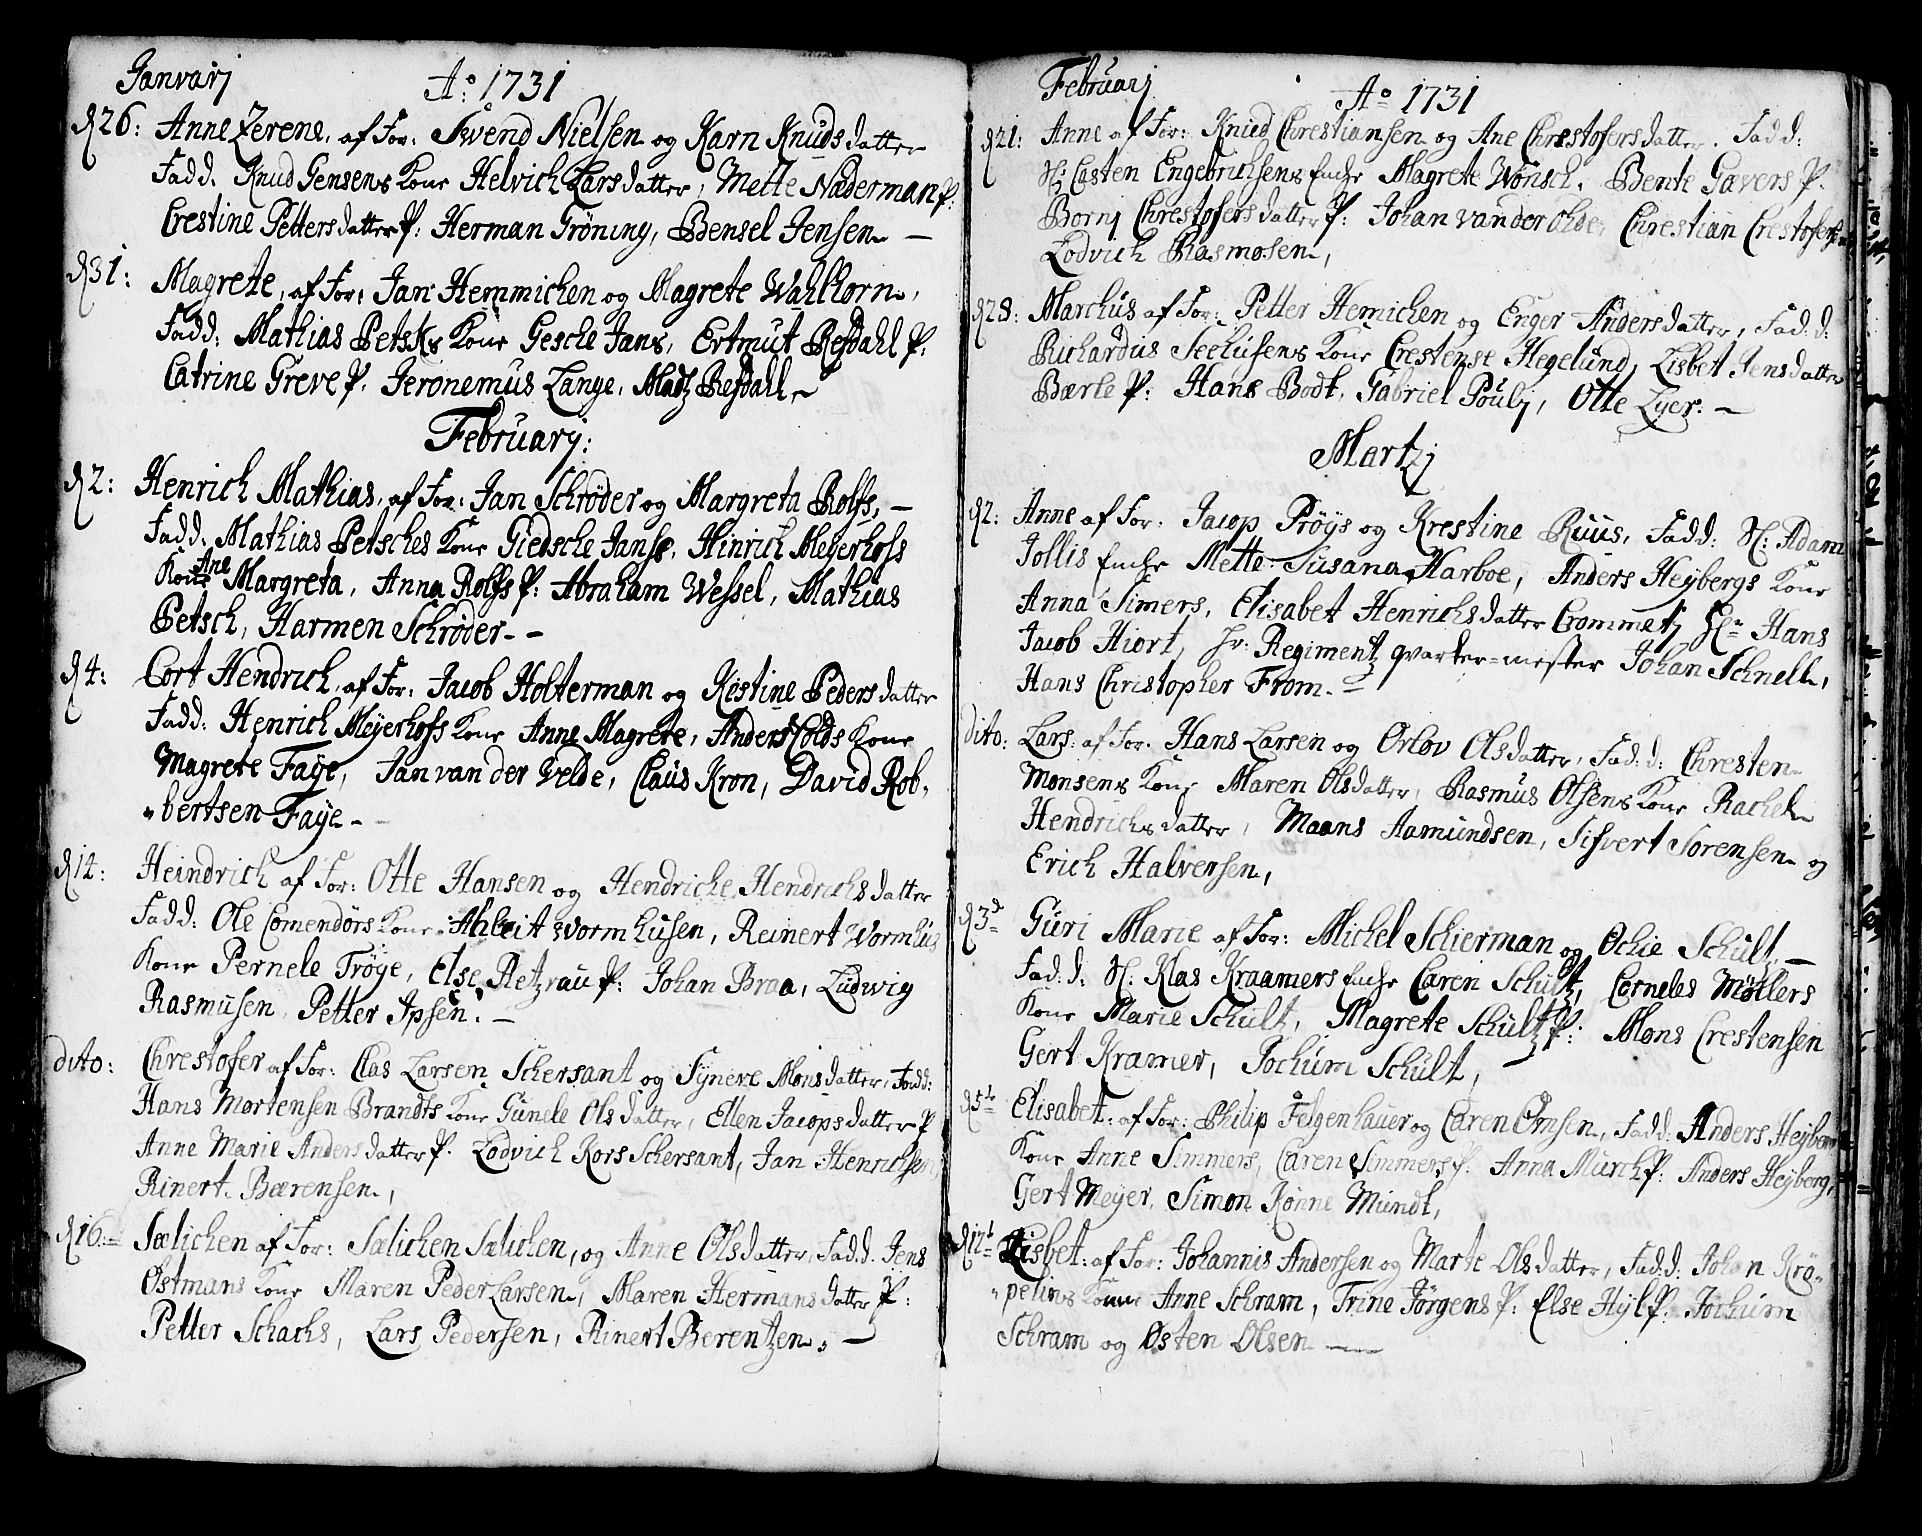 Janvarj
Ao: 1731
d 26: Anne Zerene, af For: Swend Nielsen og Karn Knudsdatter
Fadd. Knud Gensens Kone Helvich Larsdatter, Mette Næderman P:
Crestine Pettersdatter P: Herman Gröning, Bensel Jensen. —
d 31: Magrete, af For: Jan Hemmichen og Magrete Wahlhorn,
Fadd: Mathias Petsks Kone Gesche Jans, Ertmut Refdahl P:
Catrine Greve P. Jeronemus Lange, Madz Refdahl.
Februarj:
d 2: Henrich Mathias, af For: Jan Schrøder og Margreta Rolfs, —
Fadd: Mathias Petsches Kone Giedsche Janss, Hinrich Meyerhofs
Kone Ane Margreta, Anna Rolfs P: Abraham Wessel, Mathias
Petsch, Harmen Schrøder. —
d 4: Cort Hendrich, af For: Jacob Holterman og Kestine Pedersdatter
Fadd: Henrich Meyerhofs Kone Anne Magrete, Anders Colds Kone
Magrete Faye, Jan van der Velde, Claus Kron, David Rob-
-bertsen Faye. -
d 14: Heindrich af For: Otte Hansen og Hendriche Hendrichsdatter
Fadd: Ole Comendørs Kone Ahleit Wormhusen, Reinert Wormhus
Kone Pernele Trøge, Else Retzrau P: Johan Braa, Ludwig
Rasmusen, Petter Ipsen. —
dito: Chrestofer af For: Clas Larsen Schersant og Synere Monsdatter, Fadd:
Hans Mortensen Brandts Kone Gunele Olsdatter, Ellen Jacopsdatter P
Anne Marie Andersdatter P. Lodvich Kors Schersant, Jan Henrichsen,
Rinert Bærensen,
d 16: Sælichen af For: Sælichen Sælichen, og Anne Olsdatter, Fadd. Jens
Østmans Kone Maren Peder Larsen, Maren Hermansdatter P:
Petter Schachs, Lars Pedersen, Rinert Berentzen. —
Februarj
Ao 1731
d 21: Anne af For: Knud Chrestiansen og Ane Chrestofersdatter. Fadd:
H: Casten Engebrichsens Enche Magrete Wønsch, Bente Gavers P.
Bornj Chrestofersdatter P: Johan van der Ohde, Chrestian Crestofersen
Lodvich Rasmosen,
d 28: Marchus af For: Petter Hemichen og Enger Andersdatter, Fad:d:
Richardus Seehusens Kone Crestense Hegelund, Lisbet Jensdatter
Bærle P: Hans Bodt, Gabriel Poulj, Otte Lyer. —
Martzj
d 2: Anne af For: Jacop Prøys og Krestine Ruus, Fadd: H: Adam
Jollis Enche Mette Susana Harboe, Anders Heybergs Kone
Anna Simers, Elisabet Henrichsdatter Crommetj Hr Hans
Jacob Hiort, hr: Regimentz qvarter=mester Johan Schnell,
Hans Christopher From. —
dito: Lars: af For. Hans Larsen og Orlov Olsdatter, Fad:d: Chresten
Monsens Kone Maren Olsdatter, Rasmus Olsens Kone Rachel
Hendrichsdatter, Maans Aamundsen, Sifvert Sorensen og
Erich Halversen,
d 3d Guri Marie af For: Michel Schierman og Ochie Schult, —
Fad:d: H: Klas Kraamers Enche Caren Schultz, Corneles Møllers
Kone Marie Schult, Magrete Schultz P: Mons Crestensen
Gert Kramer, Jochum Schult,
d 5t Elisabet: af For: Philip Felgenhauer og Caren Omsen, Fadd: Anders Heyberg
Kone Anne Simmers, Caren Simmers P. Anna Murch P: Anders Heyberg,
Gert Meyer, Simon Rønne Mundt,
d 12t Lisbet: af For: Johannis Andersen og Marte Olsdatter, Fad:d: Johan Krø-
-pelins Kone Anne Schram, Trine Jørgens P: Else Hyl P: Jochum
Schram og Østen Olsen —